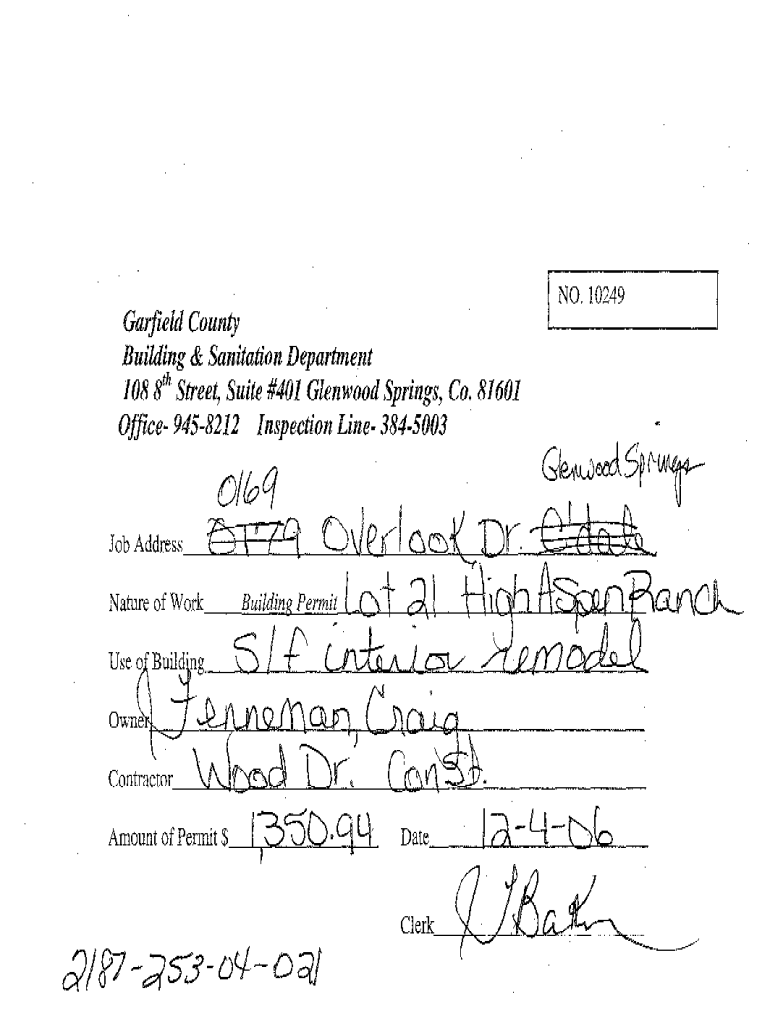 NO. 10249
Garfield County
Building & Sanitation Department
108 8th Street, Suite #401 Glenwood Springs, Co. 81601
Office- 945-8212 Inspection Line- 384-5003
Glenwood Springs
0169
Job Address Overlook Dr.
Nature of Work Building Permit Lot 21 High Aspen Ranch
Use of Building S/F interior remodel
Owner Fenneman, Craig
Contractor Wood Dr. Const.
Amount of Permit $ 1,350.94 Date 12-4-06
Clerk
2187-253-04-021